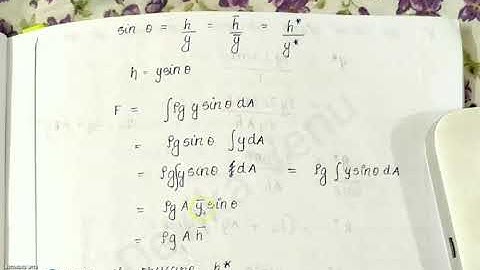 sin θ = h/y = h̄/ȳ = h*/y*
h = y sin θ
F = ∫ρg y sin θ dA
= ρg sin θ ∫ y dA
= ρg∫y sin θ dA = ρg ∫ y sin θ dA
= ρg A ȳ sin θ
= ρg A h̄
h*